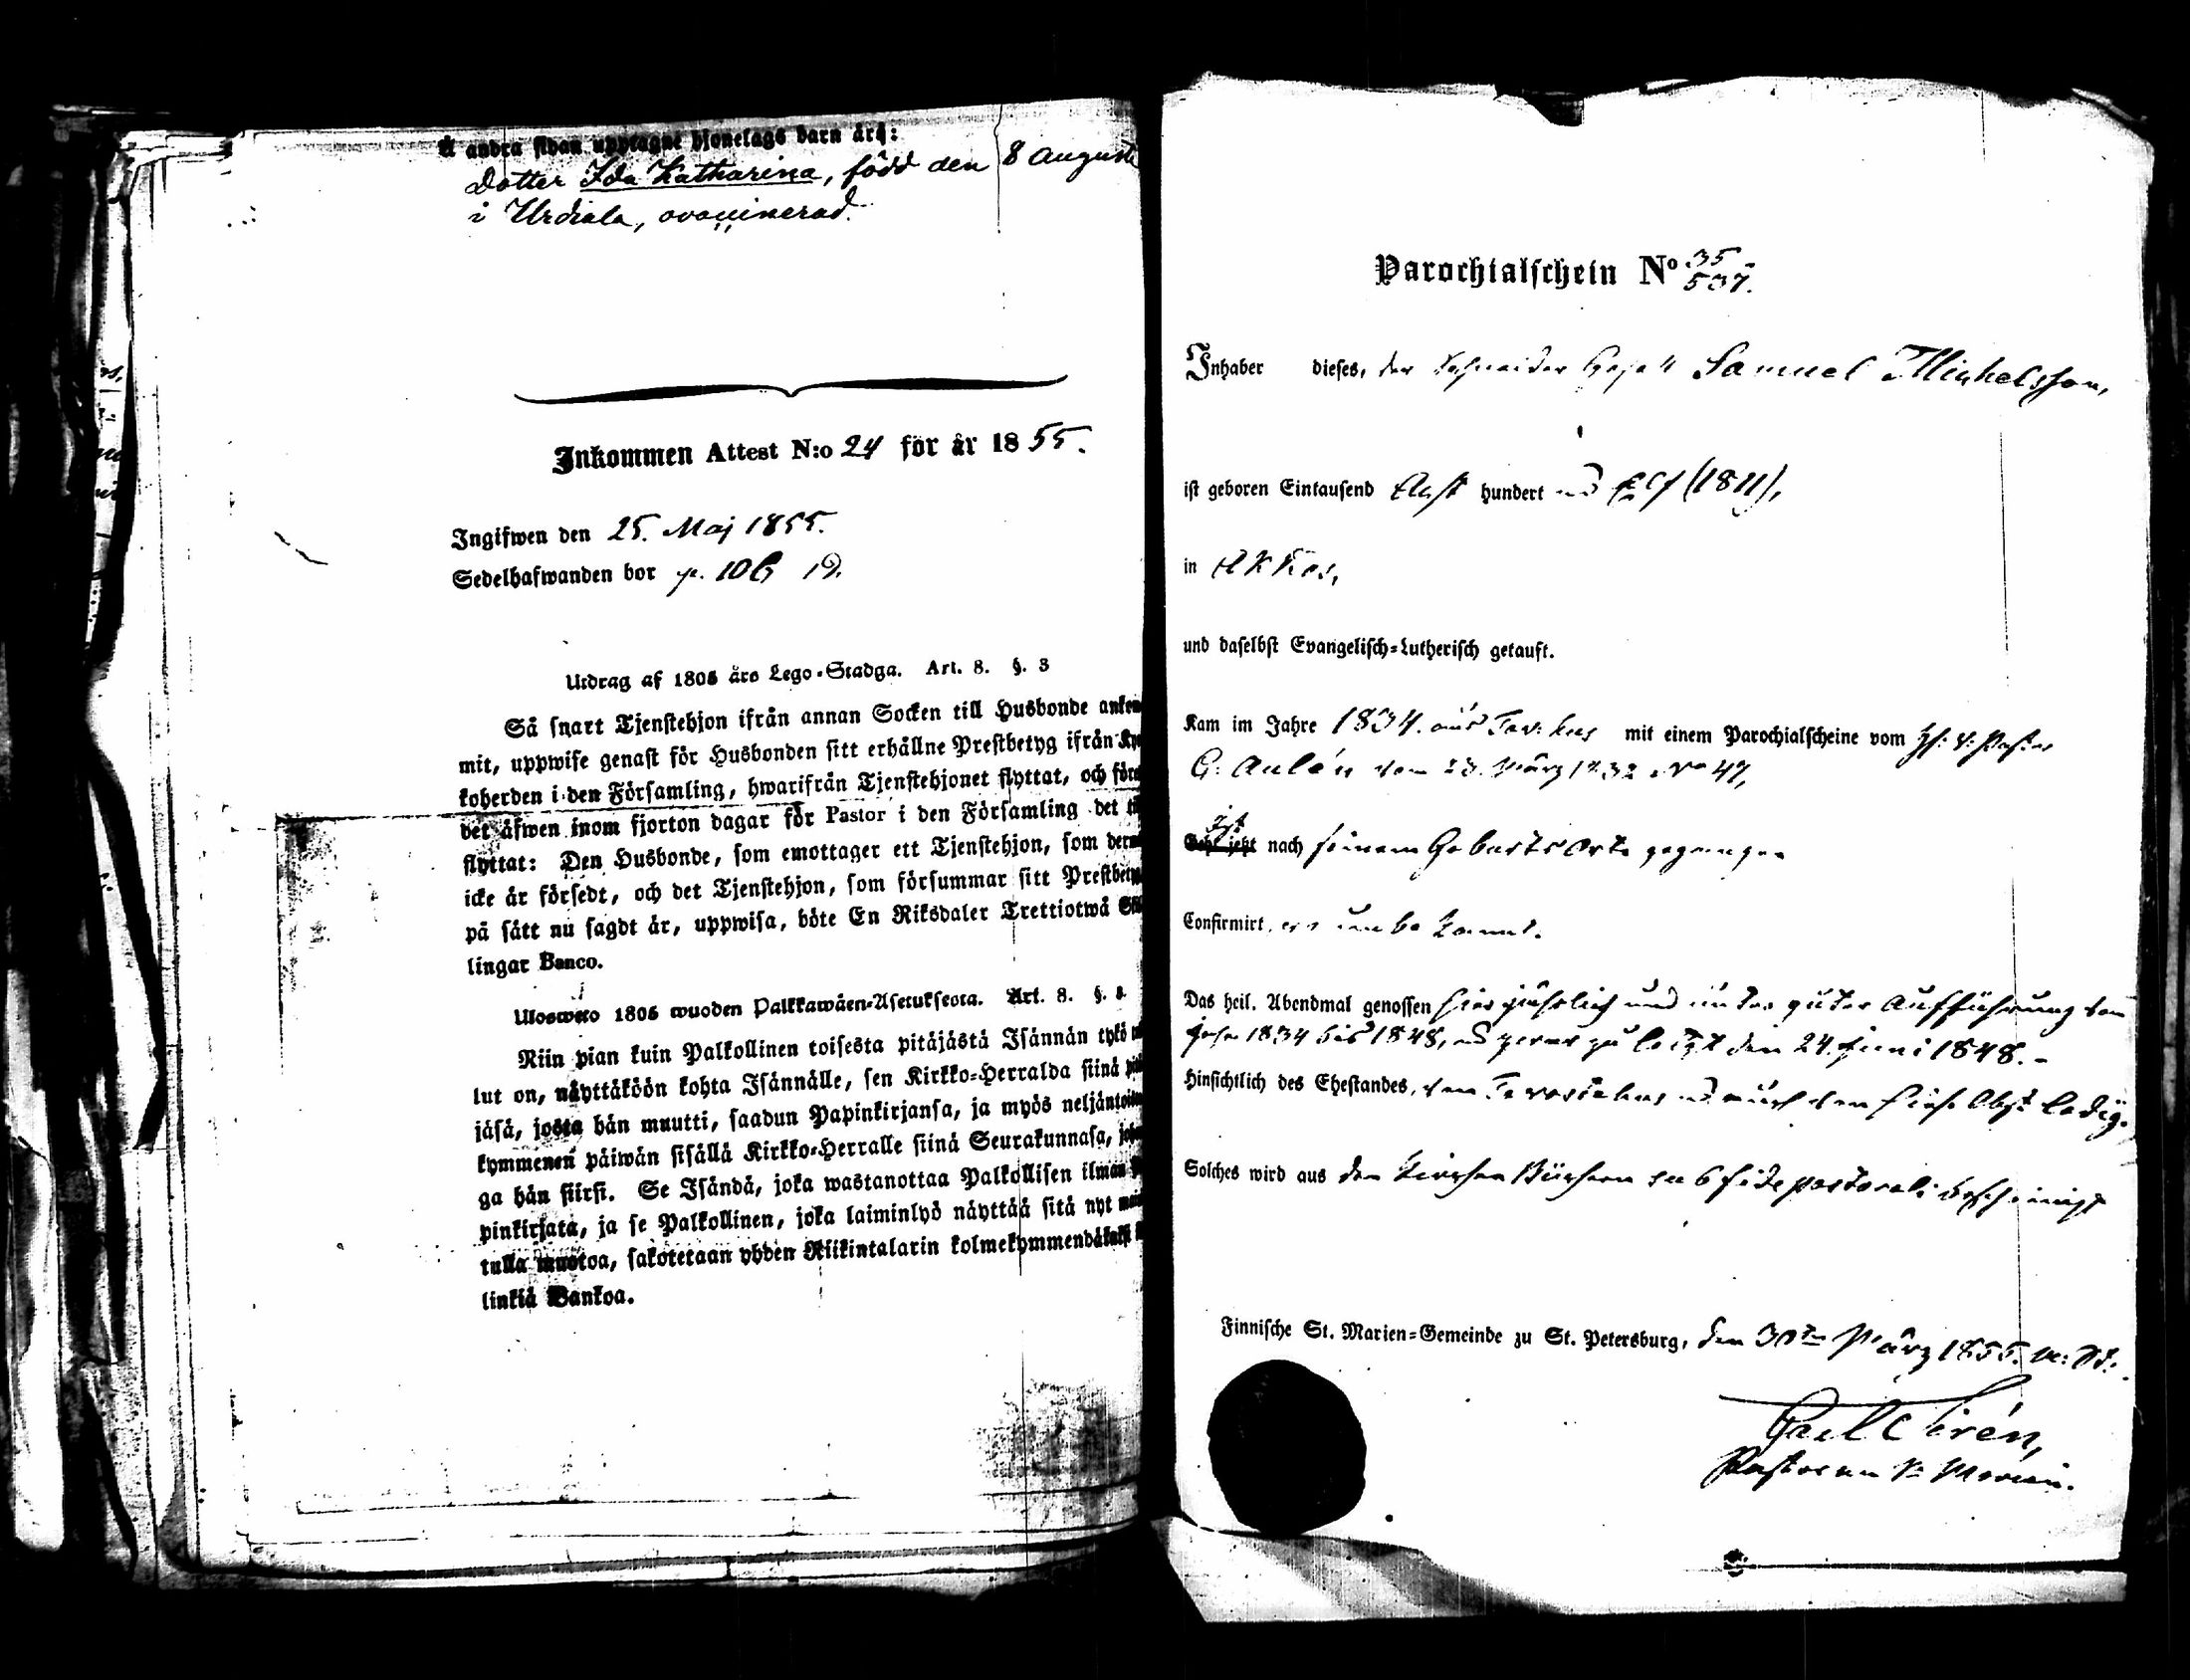 Å andra sidan upptagne hjonelags barn äro:
Dotter Ida Katharina, född den 8 Augusti
i Urdiala, ovaccinerad.
Inkommen Attest N:o 24 för år 1855.
Ingifwen den 25. Maj 1855.
Sedelhafwanden bor p. 106
Utdrag af 1805 års Lego-Stadga. Art. 8. §. 3
Så snart Tjenstehjon ifrån annan Socken till Husbonde ankom-
mit, uppwise genast för Husbonden sitt erhållne Prestbetyg ifrån Kyr-
koherden i den Församling, hwarifrån Tjenstehjonet flyttat, och före
det äfwen inom fjorton dagar för Pastor i den Församling det
flyttat: Den Husbonde, som emottager ett Tjenstehjon, som dermed
icke är försedt, och det Tjenstehjon, som försummar sitt Prestbetyg,
på sätt nu sagdt är, uppwisa, böte En Riksdaler Trettiotwå Skil-
lingar Banco.
Ulosweto 1805 wuoden Palkkawäen-Asetuksesta. Art. 8. §. 3
Niin pian kuin Palkollinen toisesta pitäjästä Isännän tykö
lut on, näyttäköön kohta Isännälle, sen Kirkko-Herralda siinä
jäsä, josta hän muutti, saadun Papinkirjansa, ja myös neljäntoista
kymmenen päiwän sisällä Kirkko-Herralle siinä Seurakunnasa,
ga hän siirsi. Se Isändä, joka wastanottaa Palkollisen ilman
pinkirjata, ja se Palkollinen, joka laiminlyö näyttää sitä nyt
tulla muotoa, sakotetaan yhden Riikintalarin kolmekymmendäkaksi
linkiä Bankoa.
Parochialschein No 35/537.
Inhaber dieses, der Schneider Gesell Samuel Michelsson,
ist geboren Eintausend Acht hundert und Elf (1811),
in Akkas,
und daselbst Evangelisch-Lutherisch getauft.
Kam im Jahre 1834. aus Tav:hus mit einem Parochialscheine vom H: V: Pastor
G. Aulén vom 23. März 1832 No 47,
Geht jetzt ist nach seinem Geburts Orte gegangen
Confirmirt, ist unbekannt.
Das heil. Abendmal genossen hier jährlich und unter guter Aufführung vom
Jahr 1834 bis 1848, und zwar zuletzt den 24. Juni 1848. -
Hinsichtlich des Ehestandes, von Tavastehus und auch von hier Obgt. ledig.
Solches wird aus den Kirchen Büchern sub fide pastorali bescheinigt
Finnische St. Marien-Gemeinde zu St. Petersburg, den 30ten März 1855. a: St:
Carl Sirén,
Pastor an St. Marien.